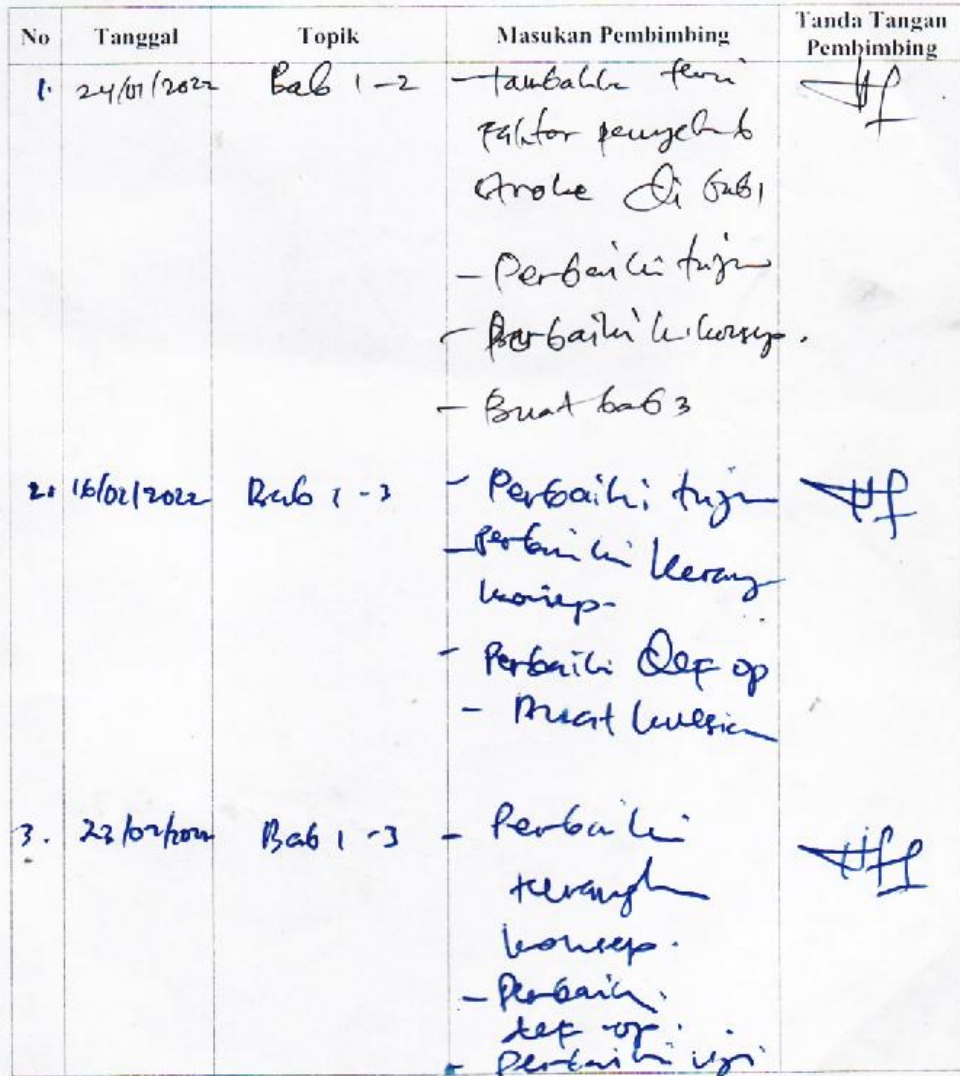 No Tanggal Topik Masukan Pembimbing Tanda Tangan Pembimbing
1. 24/01/2022 Bab 1-2 - tambahkn teori
faktor penyebab
stroke di bab 1
- Perbaiki tujun
- Perbaiki k. konsep.
- Buat bab 3
2. 16/02/2022 Bab 1-3 - Perbaiki tujun
- perbaiki kerang
konsep
- Perbaiki Def op
- Buat kuesion
3. 23/02/2022 Bab 1-3 - Perbaiki
kerangk
konsep.
- Perbaiki
def op.
- perbaiki